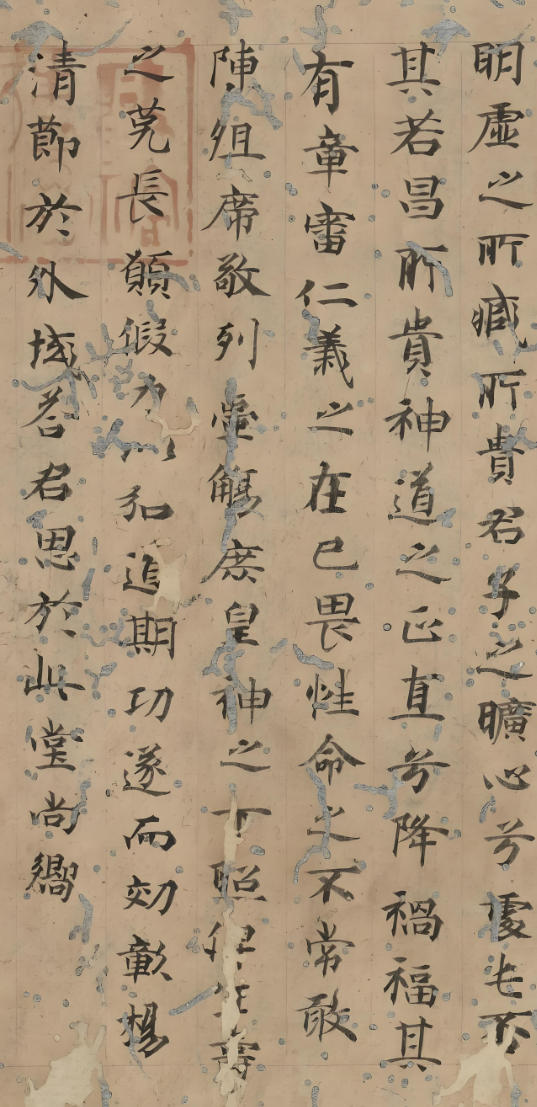 明虚之所臧所貴君子之曠心兮處屯否
其若昌所貴神道之正直兮降禍福其
有章審仁義之在己畏性命之不常敢
陳俎席敬列壺觴庶皇神之下照俾生壽
之莬長願假力加追期功遂而効彰楊
清節於外域荅君恩於此堂尚嚮